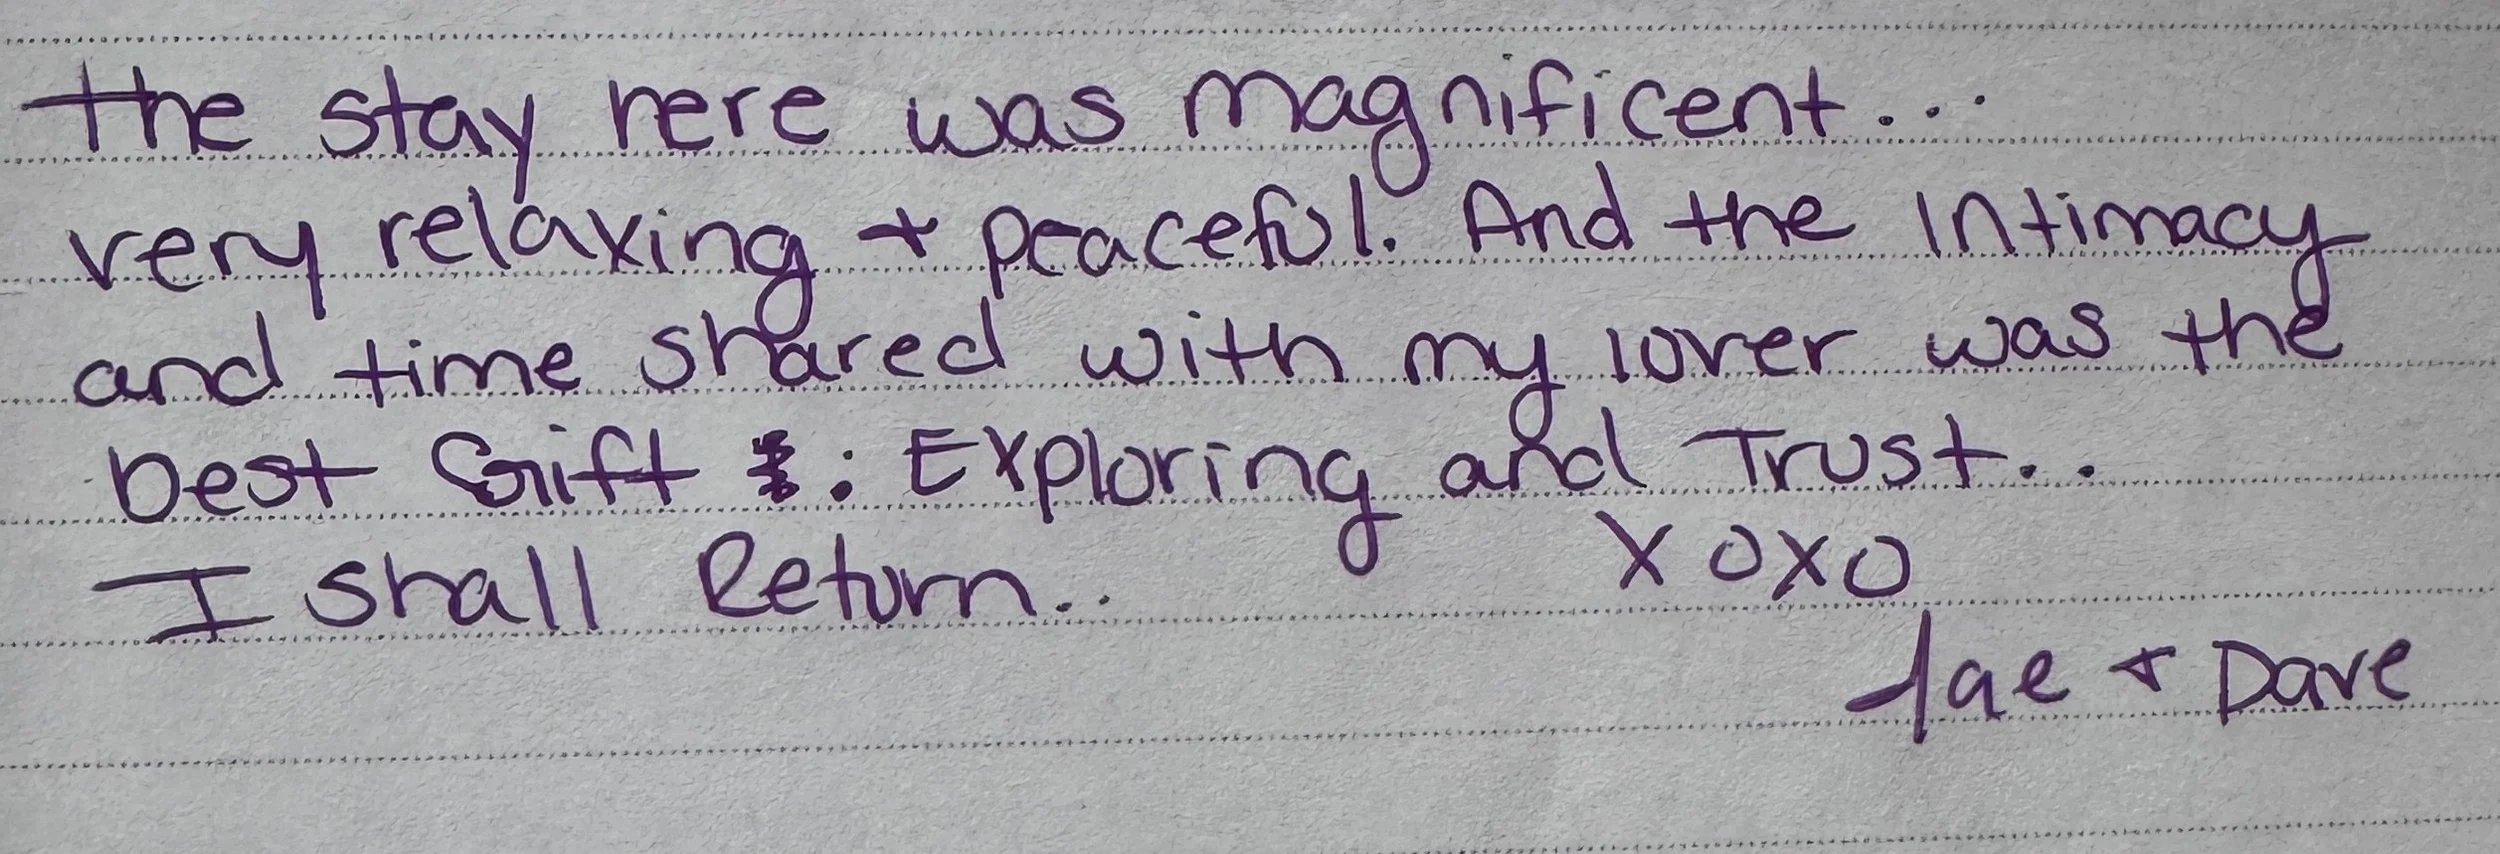 the stay here was magnificent...
very relaxing + peaceful. And the Intimacy
and time shared with my lover was the
best Gift : Exploring and Trust..
I shall Return..
XOXO
Jae + Dave